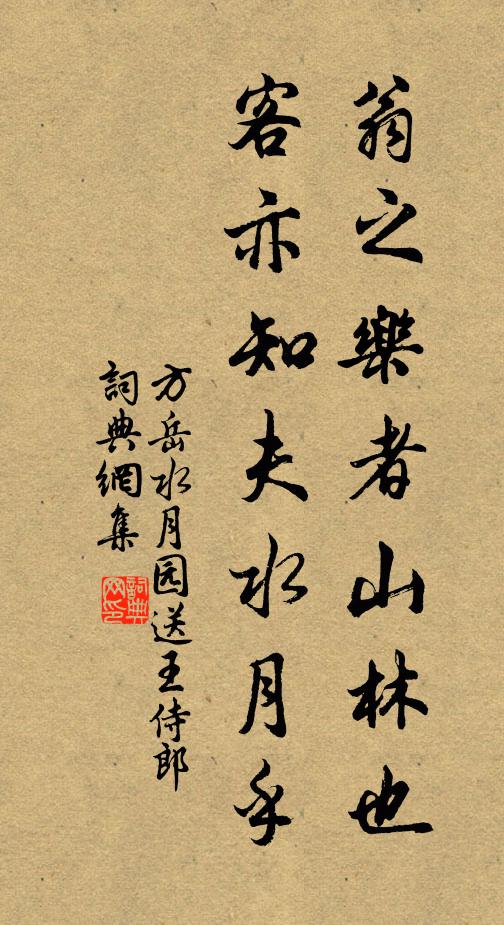 翁之樂者山林也
客亦知夫水月乎
方岳水月园送王侍郎
詞典網集
詞典网印